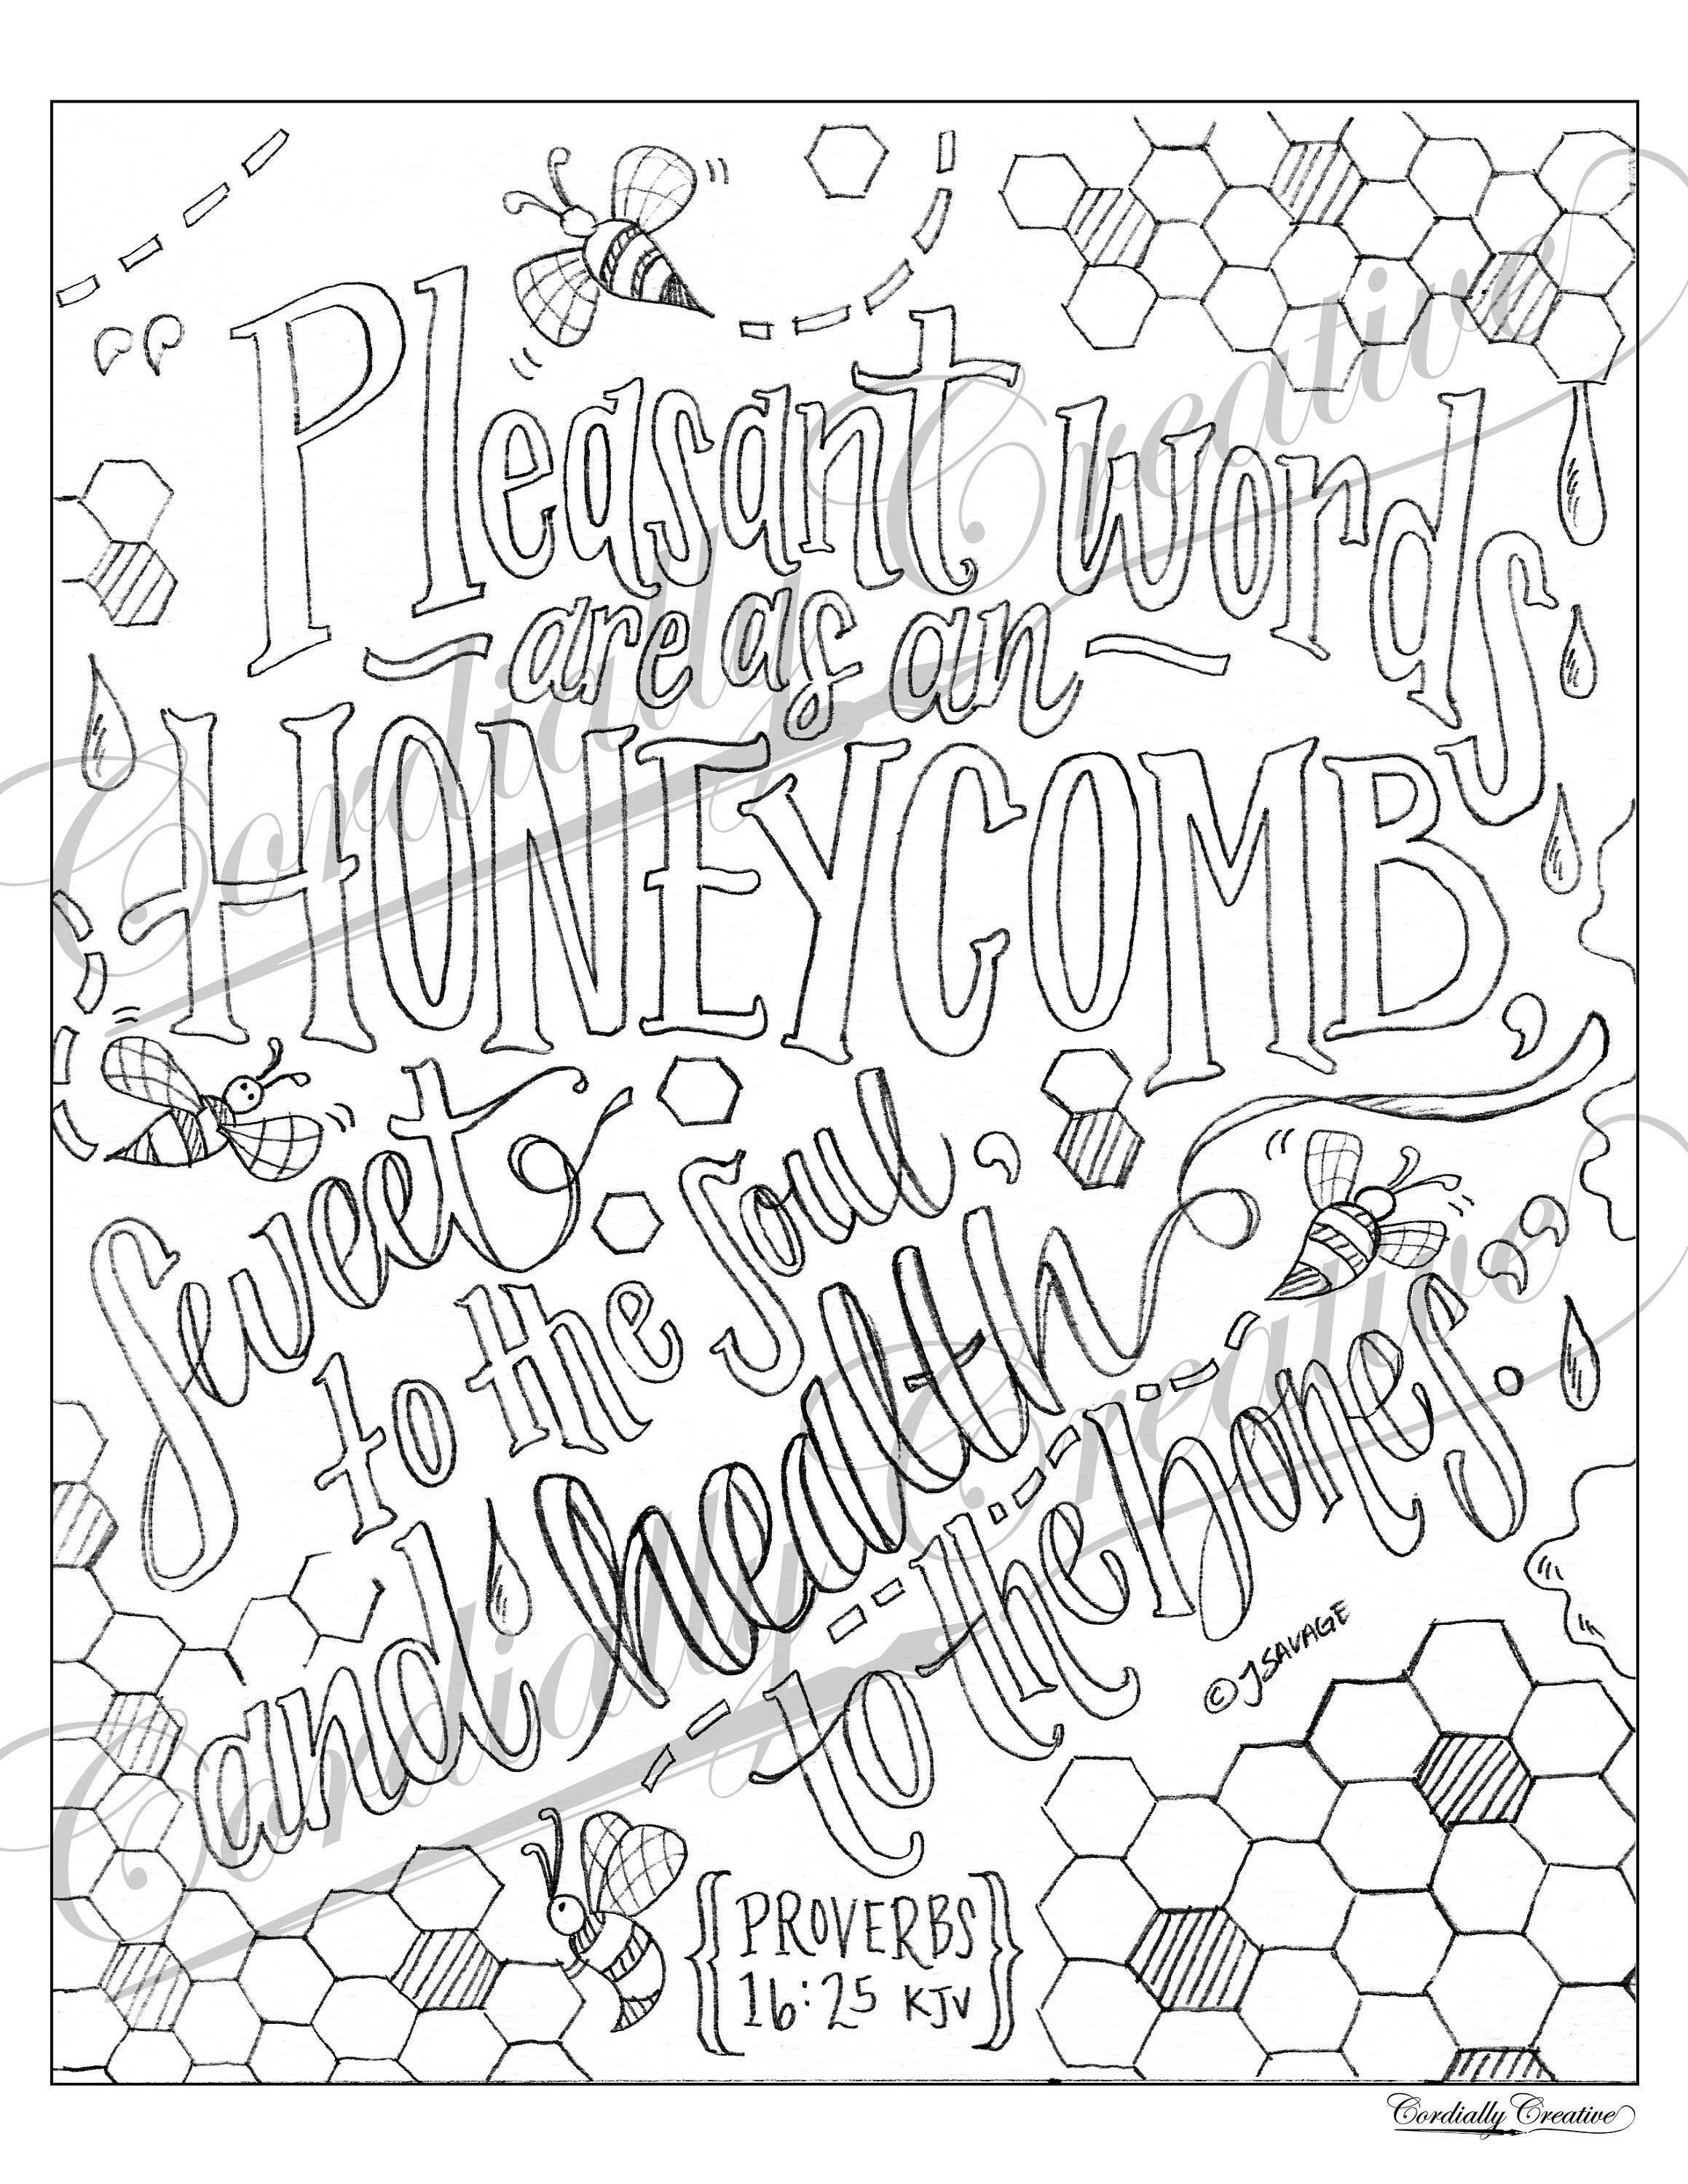 “Pleasant words
are as an
HONEYCOMB,
Sweet
to the Soul,
and health
to the bones.”
© J SAVAGE
{PROVERBS
16:25 KJV}
Cordially Creative
Cordially Creative
Cordially Creative